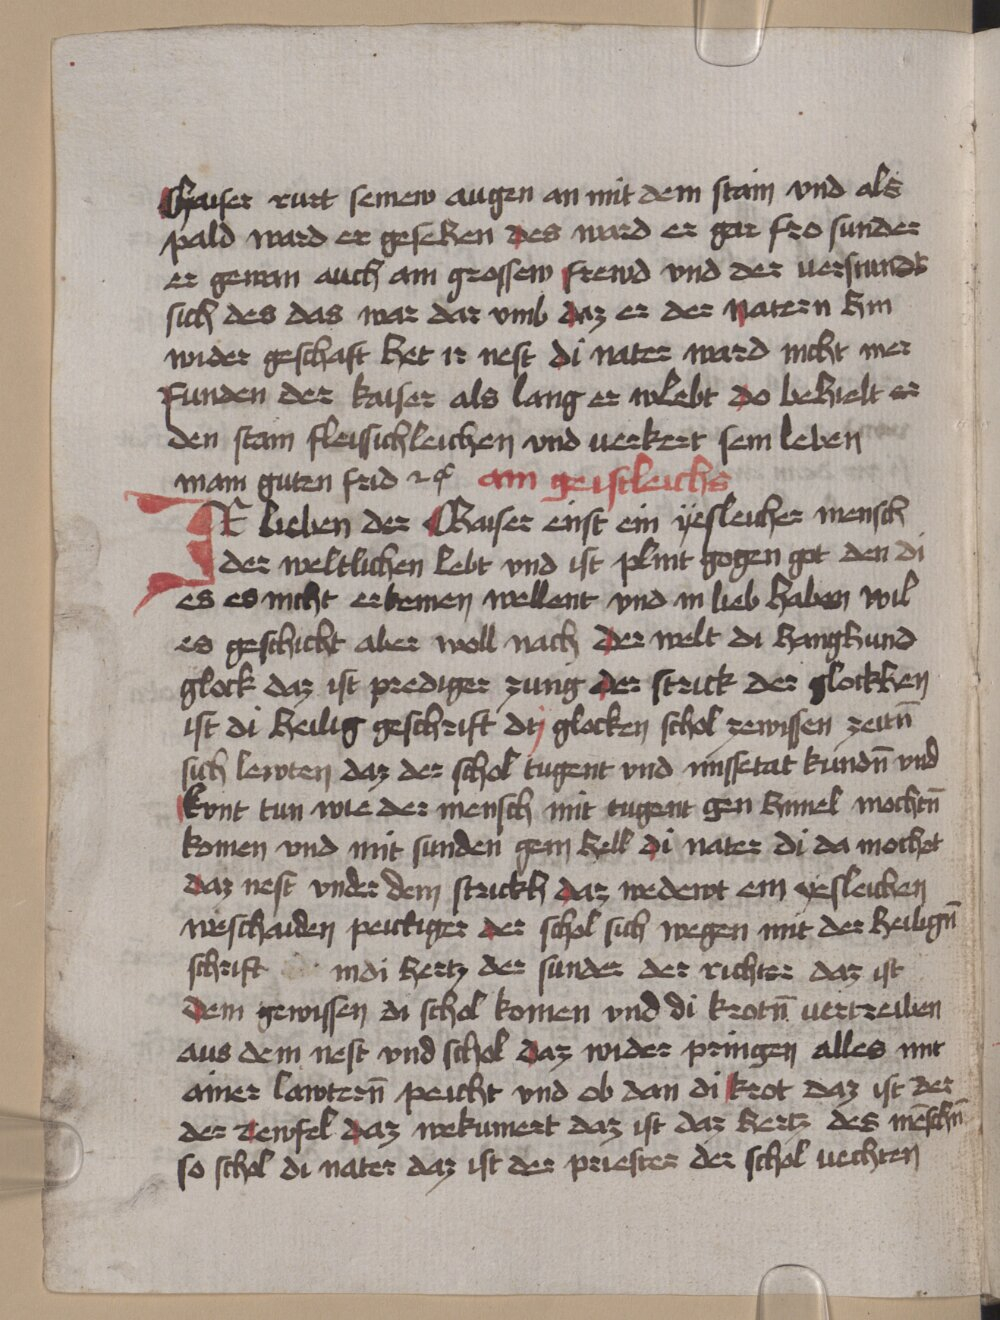 Chaiser rurt seinew augen an mit dem stain vnd als
pald ward er gesehen des ward er gar fro sunder
er gewan auch ain grossew frewd vnd der verstundt
sich des das war dar vmb daz er der natern hin
wider geschaft het ir nest di nater ward nicht mer
funden der kaiser als lang er lebt do behielt er
den stain fleissichleichen vnd verkert sein leben
in ain guten frid ain geistleichs
lieben der Chaiser einst ein yesleicher mensch
der weltlichen lebt vnd ist plint gogen got den di
es es nicht erkennen wellent vnd in lieb haben wil
es geschicht aber woll nach der welt di hanghund
glock daz ist prediger zung der strick der glockken
ist di heilig geschrift di glocken schol zewissen zeitn̄
sich lewten daz der schol tugent vnd missetat kundn̄ vnd
kunt tun wie der mensch mit tugent gen himel mochtn̄
komen vnd mit sunden gein hell di nater di da mochet
daz nest vnder dem strickh daz wedewt ein yesleichen
weschaiden peichtiger der schol sich wegen mit der heilign̄
schrift in di hertz der sunder der richter daz ist
dem gewissen di schol komen vnd di krotn̄ vertreiben
aus dem nest vnd schol daz wider pringen alles mit
ainer lawtern̄ peicht vnd ob dan di krot daz ist der
der Tewfel daz wekumert daz ist daz hertz des mēschn̄
so schol di nater daz ist der priester der schol vechten